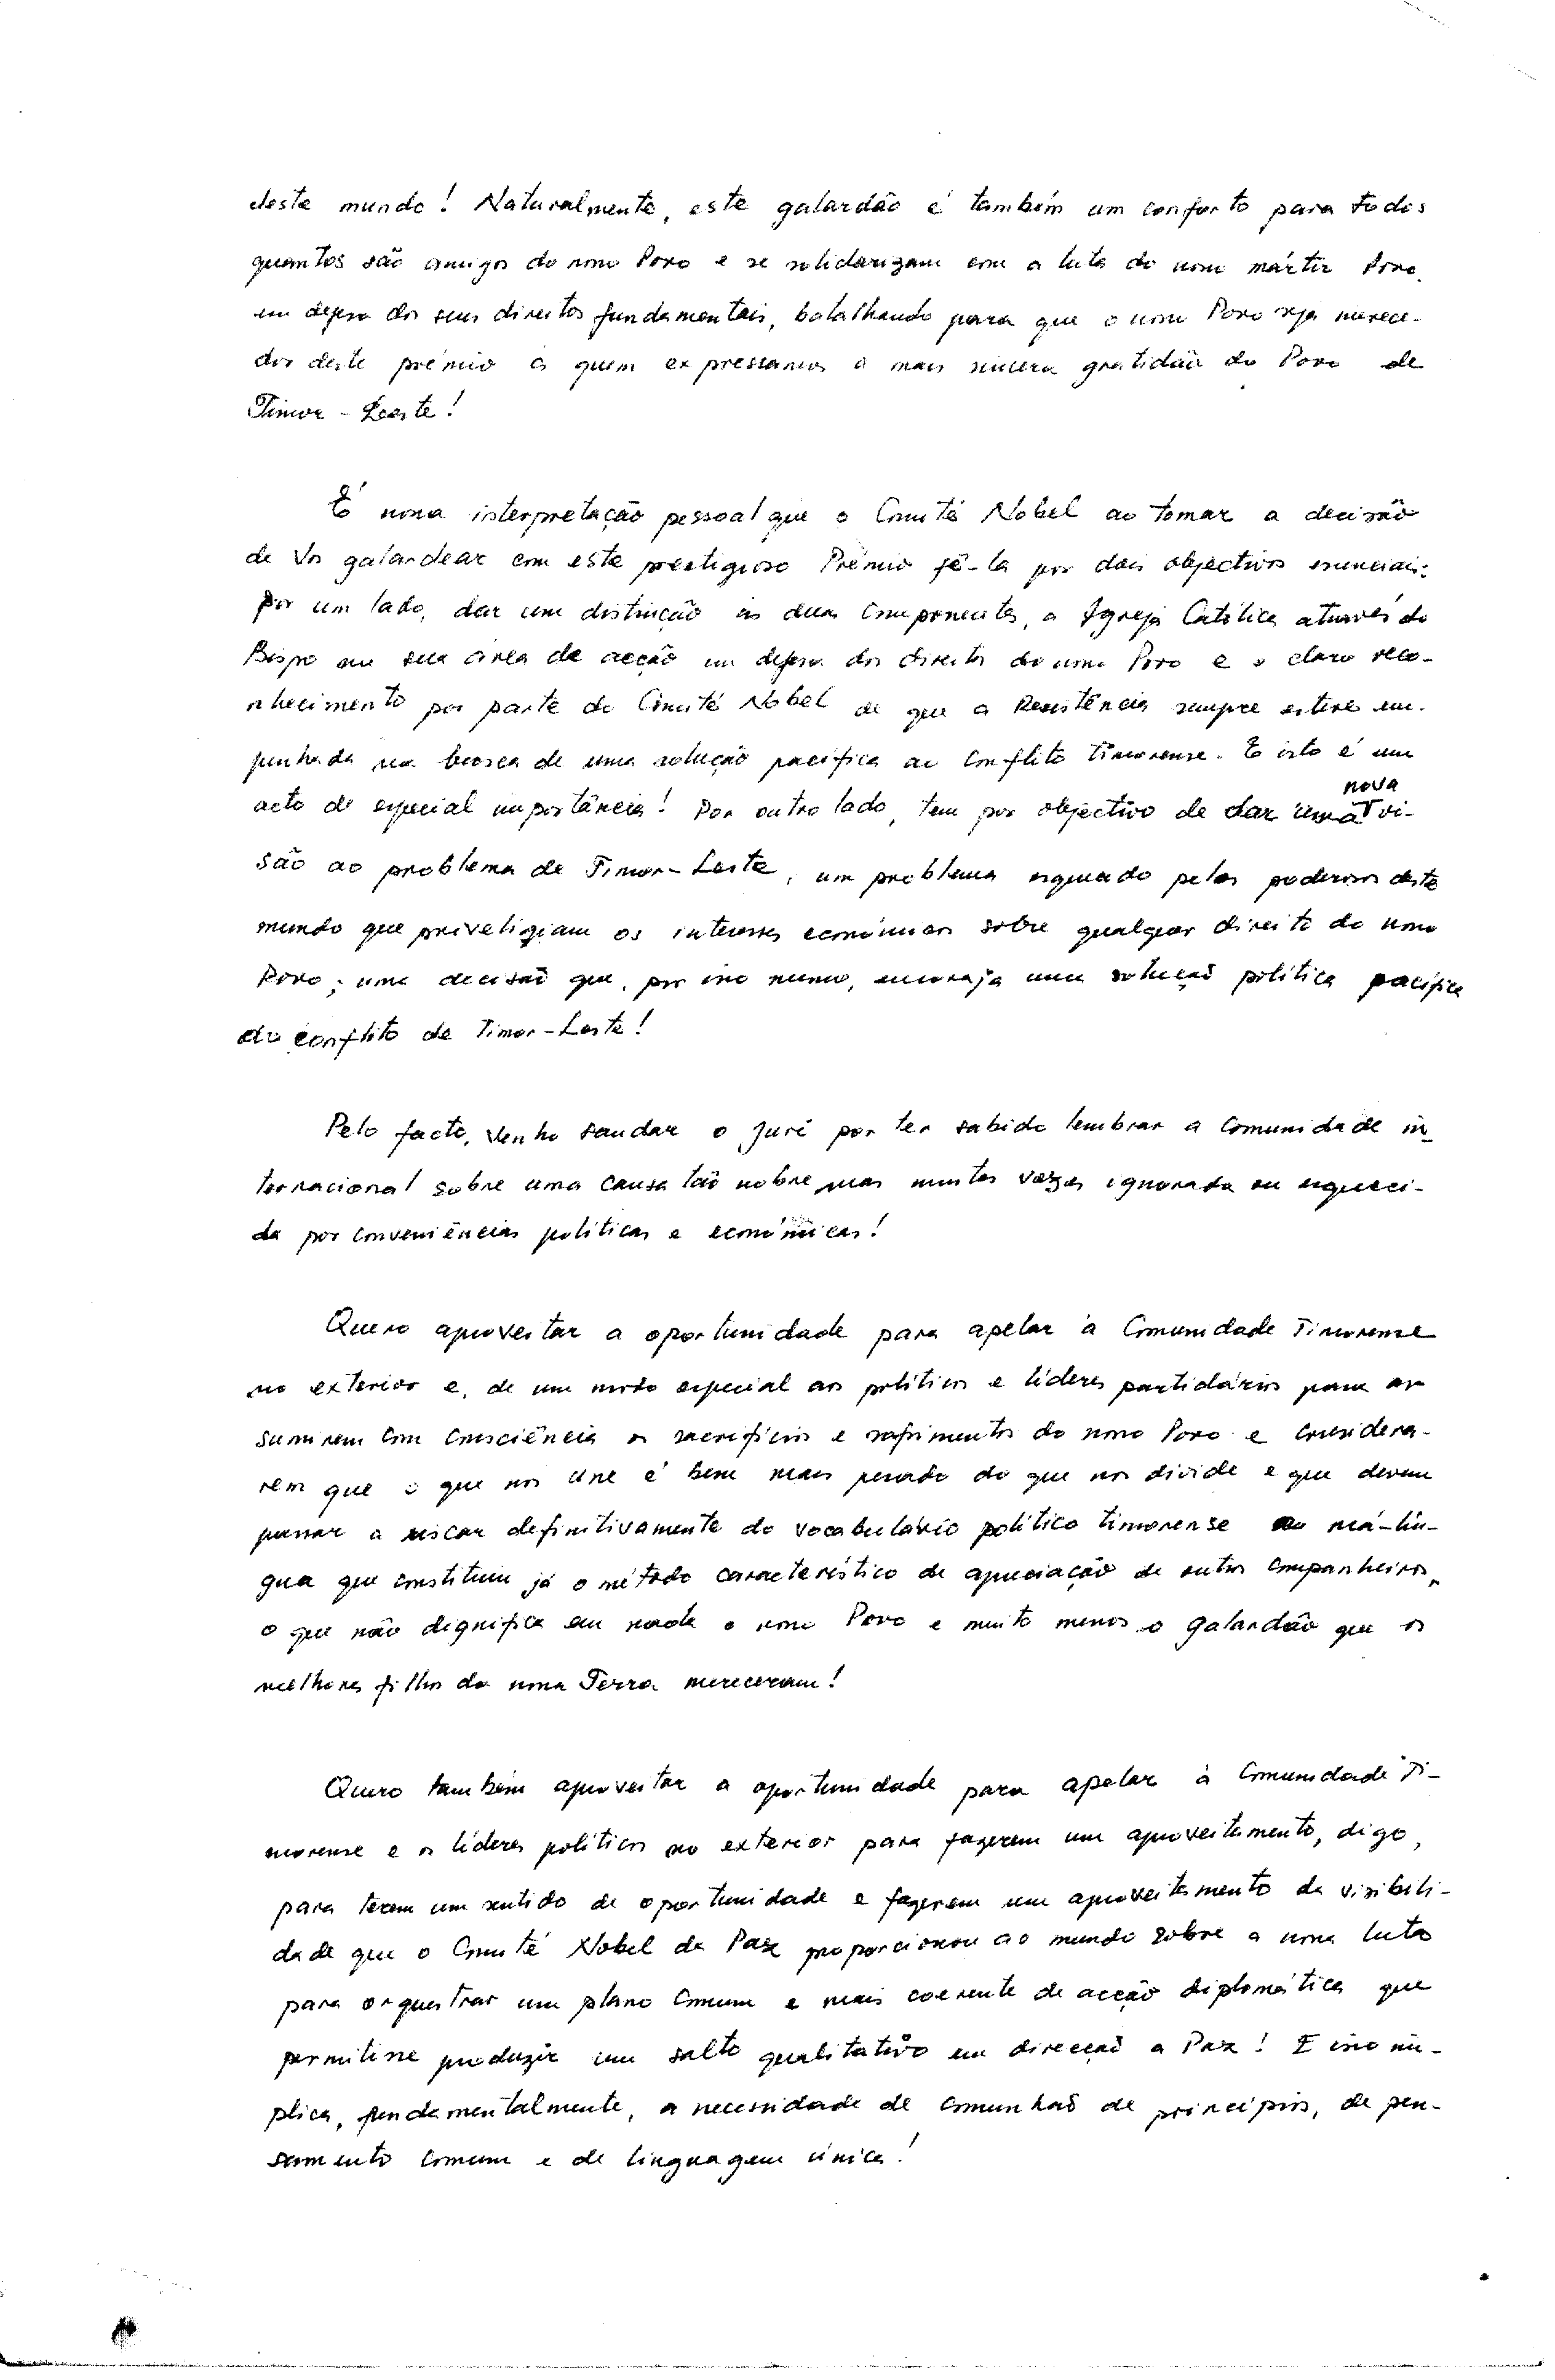 deste mundo! Naturalmente, este galardão é também um conforto para todos
quantos são amigos do nosso Povo e se solidarizam com a luta do nosso mártir Povo,
em defesa dos seus direitos fundamentais, batalhando para que o nosso Povo seja merece-
dor deste prémio a quem expressamos a mais sincera gratidão do Povo de
Timor-Leste!
É nossa interpretação pessoal que o Comité Nobel ao tomar a decisão
de Vos galardear com este prestigioso Prémio fê-la por dois objectivos essenciais:
por um lado, dar uma distinção às duas componentes, a Igreja Católica através do
Bispo na sua área de acção em defesa dos direitos do nosso Povo e o claro reco-
nhecimento por parte do Comité Nobel de que a Resistência sempre esteve em-
penhada na busca de uma solução pacífica ao conflito timorense. E isto é um
acto de especial importância! Por outro lado, tem por objectivo de dar uma nova vi-
são ao problema de Timor-Leste, um problema esquecido pelos poderosos deste
mundo que priveligiam os interesses económicos sobre qualquer direito do nosso
Povo; uma decisão que, por isso mesmo, encoraja uma solução política pacífica
do conflito de Timor-Leste!
Pelo facto, venho saudar o juri por ter sabido lembrar a comunidade in-
ternacional sobre uma causa tão nobre mas muitas vezes ignorada ou esqueci-
da por conveniências políticas e económicas!
Quero aproveitar a oportunidade para apelar à Comunidade Timorense
no exterior e, de um modo especial aos políticos e líderes partidários para as-
sumirem com consciência os sacrifícios e sofrimentos do nosso Povo e considera-
rem que o que nos une é bem mais pesado do que nos divide e que devem
passar a riscar definitivamente do vocabulário político timorense a má-lín-
gua que constitui já o método característico de apreciação de outros companheiros,
o que não dignifica em nada o nosso Povo e muito menos o galardão que os
melhores filhos da nossa Terra mereceram!
Quero também aproveitar a oportunidade para apelar à Comunidade Ti-
morense e os líderes políticos no exterior para fazerem um aproveitamento, digo,
para terem um sentido de oportunidade e fazerem um aproveitamento da visibili-
dade que o Comité Nobel da Paz proporcionou ao mundo sobre a nossa luta
para orquestrar um plano comum e mais coerente de acção diplomática que
permitisse produzir um salto qualitativo em direcção a Paz! E isso im-
plica, fundamentalmente, a necessidade de comunhão de princípios, de pen-
samento comum e de linguagem única!